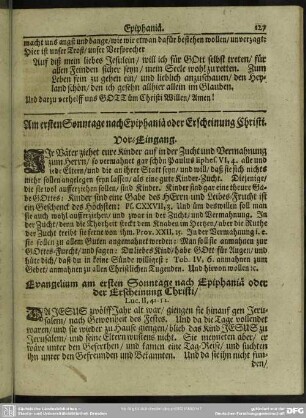 Epiphaniâ. 127
macht uns angst und bange/wie wir etwan dafür bestehen wollen/unverzagt:
Hier ist unser Trost/unser Versprecher
Auf diß mein liebes Jesulein/will ich für GOtt selbst treten/für
allen Feinden sicher seyn/mein Seele wohl zuretten. Zum
Leben sein zu gehen ein/und lieblich anzuschauen/den Hey-
land schön/den ich gesehn allhier allein im Glauben.
Und darzu verhelff uns GOTT üm Christi Willen/Amen!
Am ersten Sonntage nach Epiphaniâ oder Erscheinung Christi.
Vor-Eingang.
Ihr Väter ziehet eure Kinder auf in der Zucht und Vermahnung
zum HErrn/so vermahnet gar schön Paulus Ephes. VI, 4. alle und
jede Eltern/und die an ihrer Stelle seyn/und will/daß sie sich nichts
mehr sollen angelegen seyn lassen/als eine gute Kinder-Zucht. Diejenigen/
die sie wol aufferziehen sollen/sind Kinder. Kinder sind gar eine theure Ga-
be GOttes: Kinder sind eine Gabe des HErrn und Leibes-Frucht ist
ein Geschenck des Höchsten: Ps. CXXVII, 3. Und üm deswillen soll man
sie auch wohl aufferziehen/und zwar in der Zucht/und Vermahnung. In
der Zucht/denn die Thorheit steckt dem Knaben im Hertzen/aber die Ruthe
der Zucht treibe ferne von ihm. Prov. XXII, 15. In der Vermahnung/ i. e.
sie sollen zu allem Guten angemahnet werden: Man soll sie anmahnen zur
GOttes-Furcht/und sagen: Du liebes Kind/habe GOtt für Augen/und
hüte dich/daß du in keine Sünde willigest 2c. Tob. IV, 6. anmahnen zum
Gebet/anmahnen zu allen Christlichen Tugenden. Und hievon wollen 2c.
Evangelium am ersten Sonntage nach Epiphaniâ oder
der Erscheinung Christi/
Luc. II, 41-52.
DA JESUS zwölff Jahr alt war/giengen sie hinauf gen Jeru-
salem/nach Gewonheit des Festes. Und da die Tage vollendet
waren/und sie wieder zu Hause giengen/blieb das Kind JESUS zu
Jerusalem/und seine Eltern wustens nicht. Sie meineten aber/er
wäre unter den Gefehrten/und kamen eine Tag-Reise/und suchten
ihn unter den Gefreunden und Bekannten. Und da sie ihn nicht fun-
den/